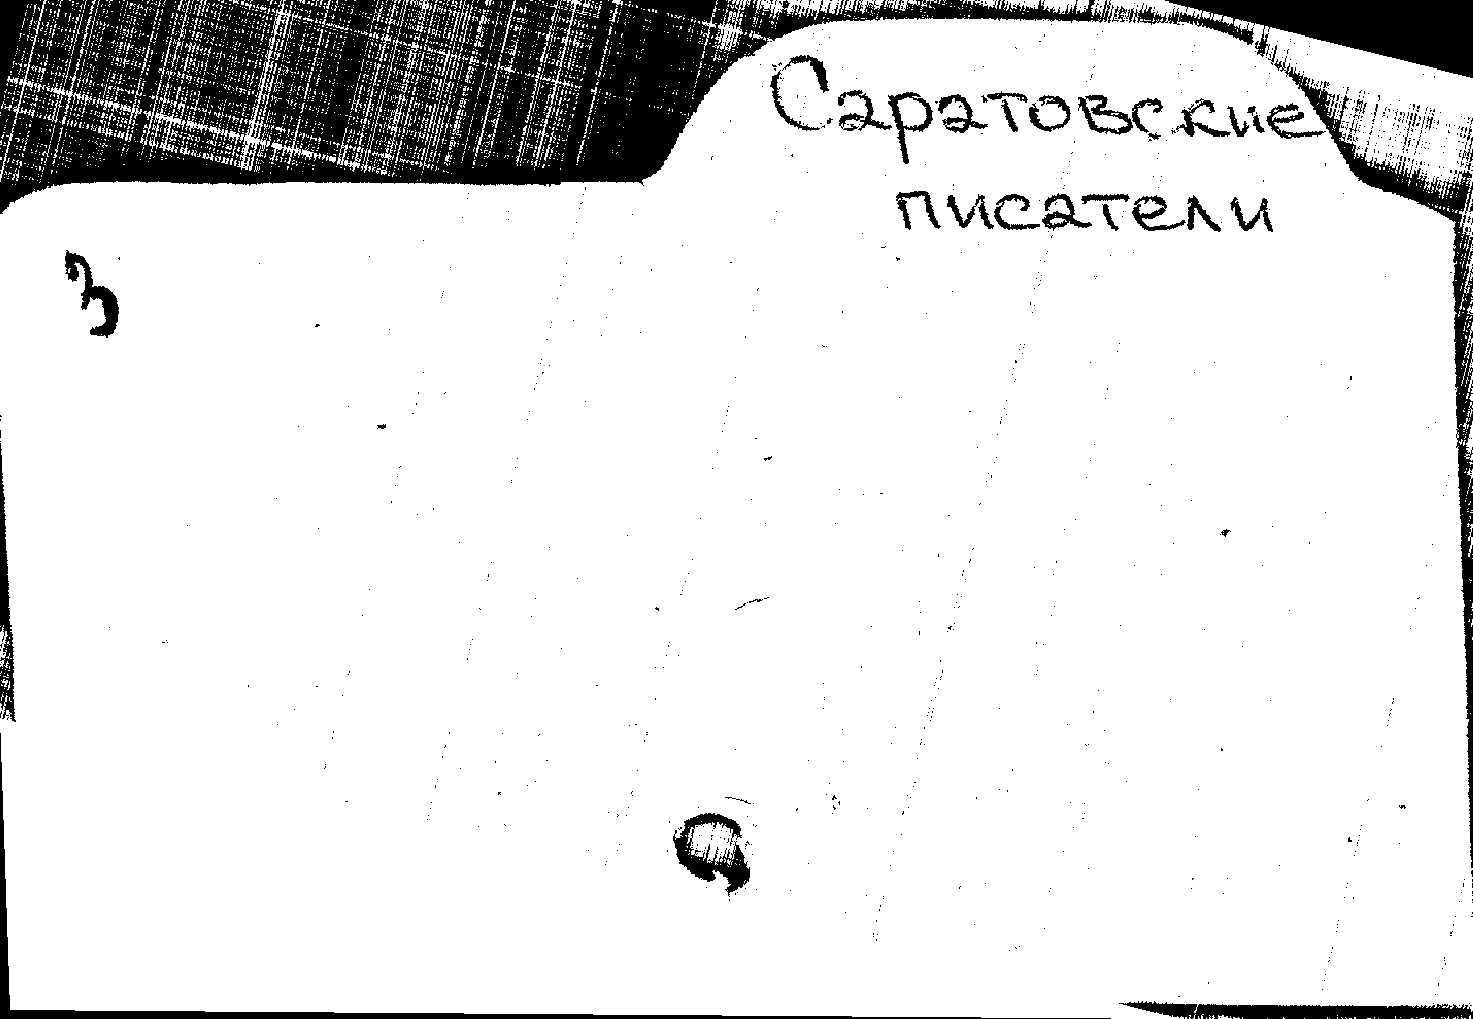 Саратовские
писатели
3